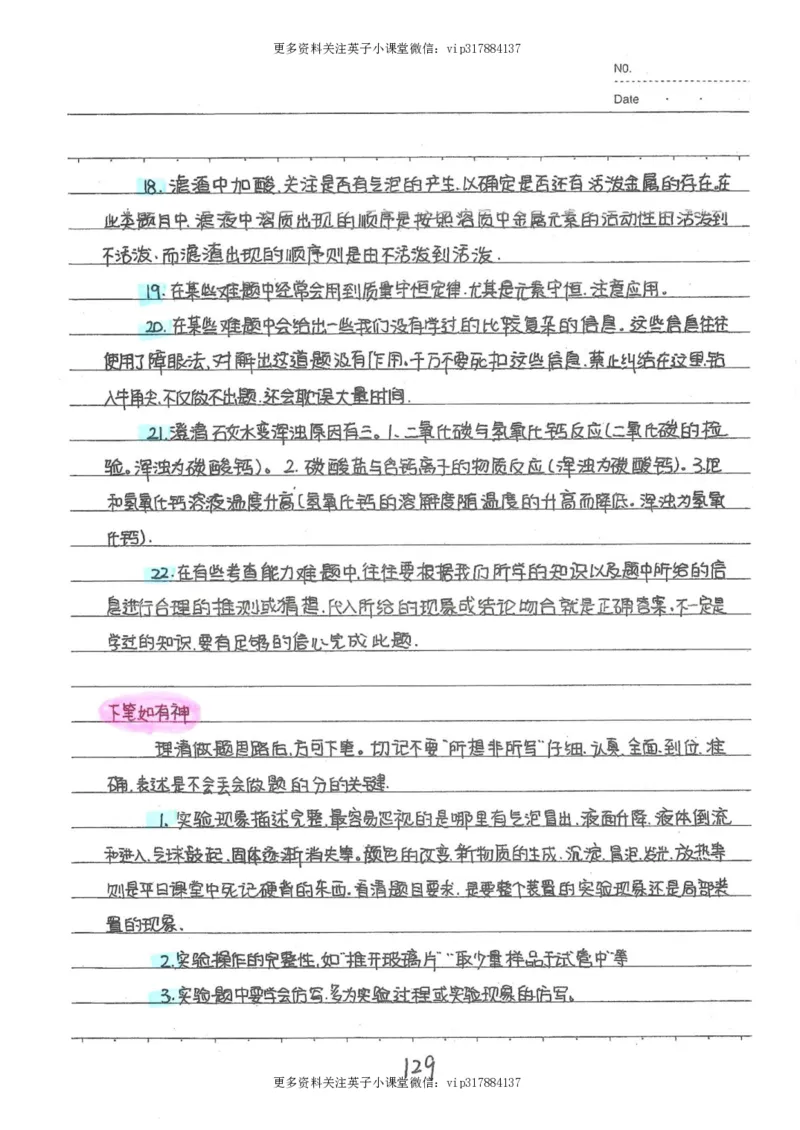 更多资料关注英子小课堂微信：vip317884137
NO.
Date · ·
18. 滤渣中加酸,关注是否有气泡的产生,以确定是否还有活泼金属的存在。在
此类题目中,滤液中溶质出现的顺序是按照溶质中金属元素的活动性由活泼到
不活泼,而滤渣出现的顺序则是由不活泼到活泼.
19. 在某些难题中经常会用到质量守恒定律,尤其是元素守恒,注意应用。
20. 在某些难题中会给出一些我们没有学过的比较复杂的信息。这些信息往往
使用了障眼法,对解出这道题没有作用,千万不要死扣这些信息,禁止纠结在这里,钻
入牛角尖,不仅做不出题,还会耽误大量时间.
21. 澄清石灰水变浑浊原因有三。1、二氧化碳与氢氧化钙反应(二氧化碳的检
验。浑浊为碳酸钙)。2. 碳酸盐与含钙离子的物质反应(浑浊为碳酸钙)。3.饱
和氢氧化钙溶液温度升高(氢氧化钙的溶解度随温度的升高而降低。浑浊为氢氧
化钙).
22. 在有些考查能力难题中,往往要根据我们所学的知识以及题中所给的信
息进行合理的推测或猜想,代入所给的现象或结论吻合就是正确答案,不一定是
学过的知识,要有足够的信心完成此题.
下笔如有神
理清做题思路后,方可下笔。切记不要"所想非所写"仔细、认真、全面、到位、准
确,表述是不会丢会做题的分的关键.
1. 实验现象描述完整,最容易忽视的是哪里有气泡冒出,液面升降,液体倒流
和进入,气球鼓起,固体逐渐消失等。颜色的改变,新物质的生成,沉淀,冒泡,发光,放热等
则是平日课堂中死记硬背的东西。看清题目要求,是要整个装置的实验现象还是局部装
置的现象.
2.实验操作的完整性,如"推开玻璃片""取少量样品于试管中"等
3.实验题中要学会仿写,多为实验过程或实验现象的仿写。
129
更多资料关注英子小课堂微信：vip317884137